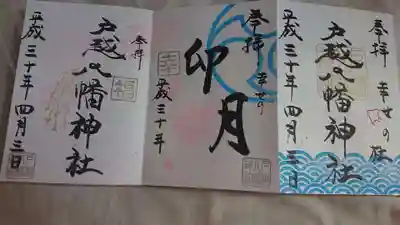 奉拝 幸せの社
戸越八幡神社
平成三十年四月三日
奉拝 幸せの
卯月
平成三十年
幸
奉拝
戸越八幡神社
福
平成三十年四月三日